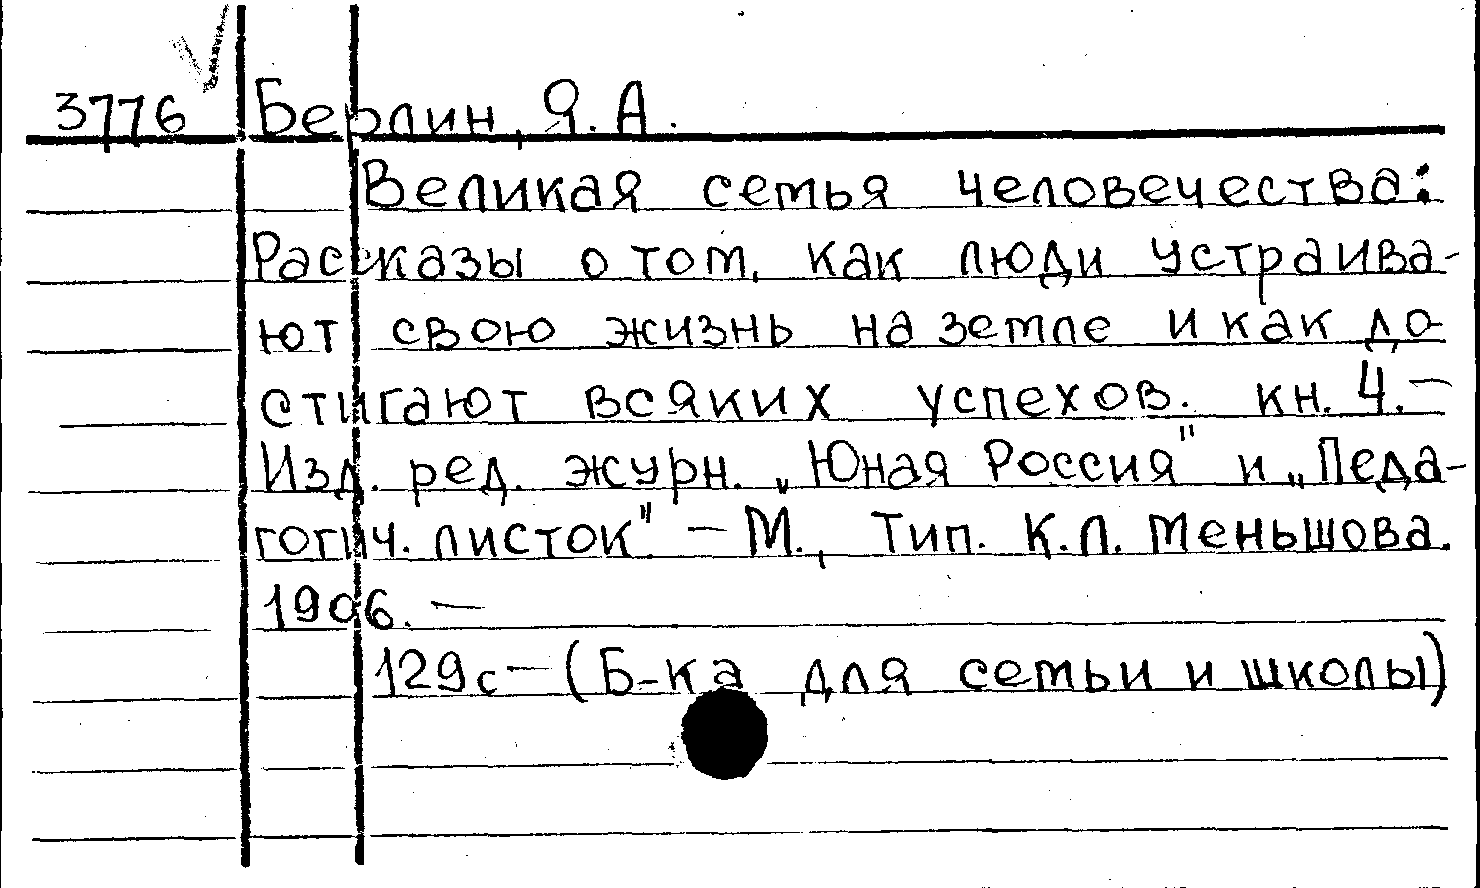 3776 Берлин, Я. А.
Великая семья человечества:
Рассказы о том, как люди устраива-
ют свою жизнь на земле и как до-
стигают всяких успехов. кн. 4.—
Изд. ред. журн. „Юная Россия" и „Педа-
гогич. листок". — М., Тип. К.Л. Меньшова.
1906. —
129с — (Б-ка для семьи и школы)